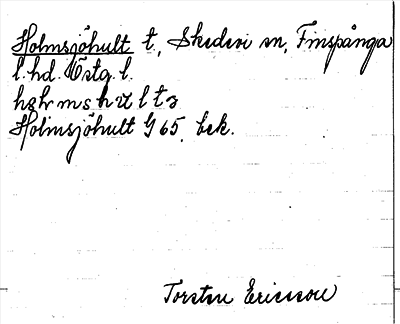 Holmsjöhult t., Skedevi sn, Finspånga
l. hd. Östg. l.
Holmsjöhult G 65. bek.
Torsten Ericsson